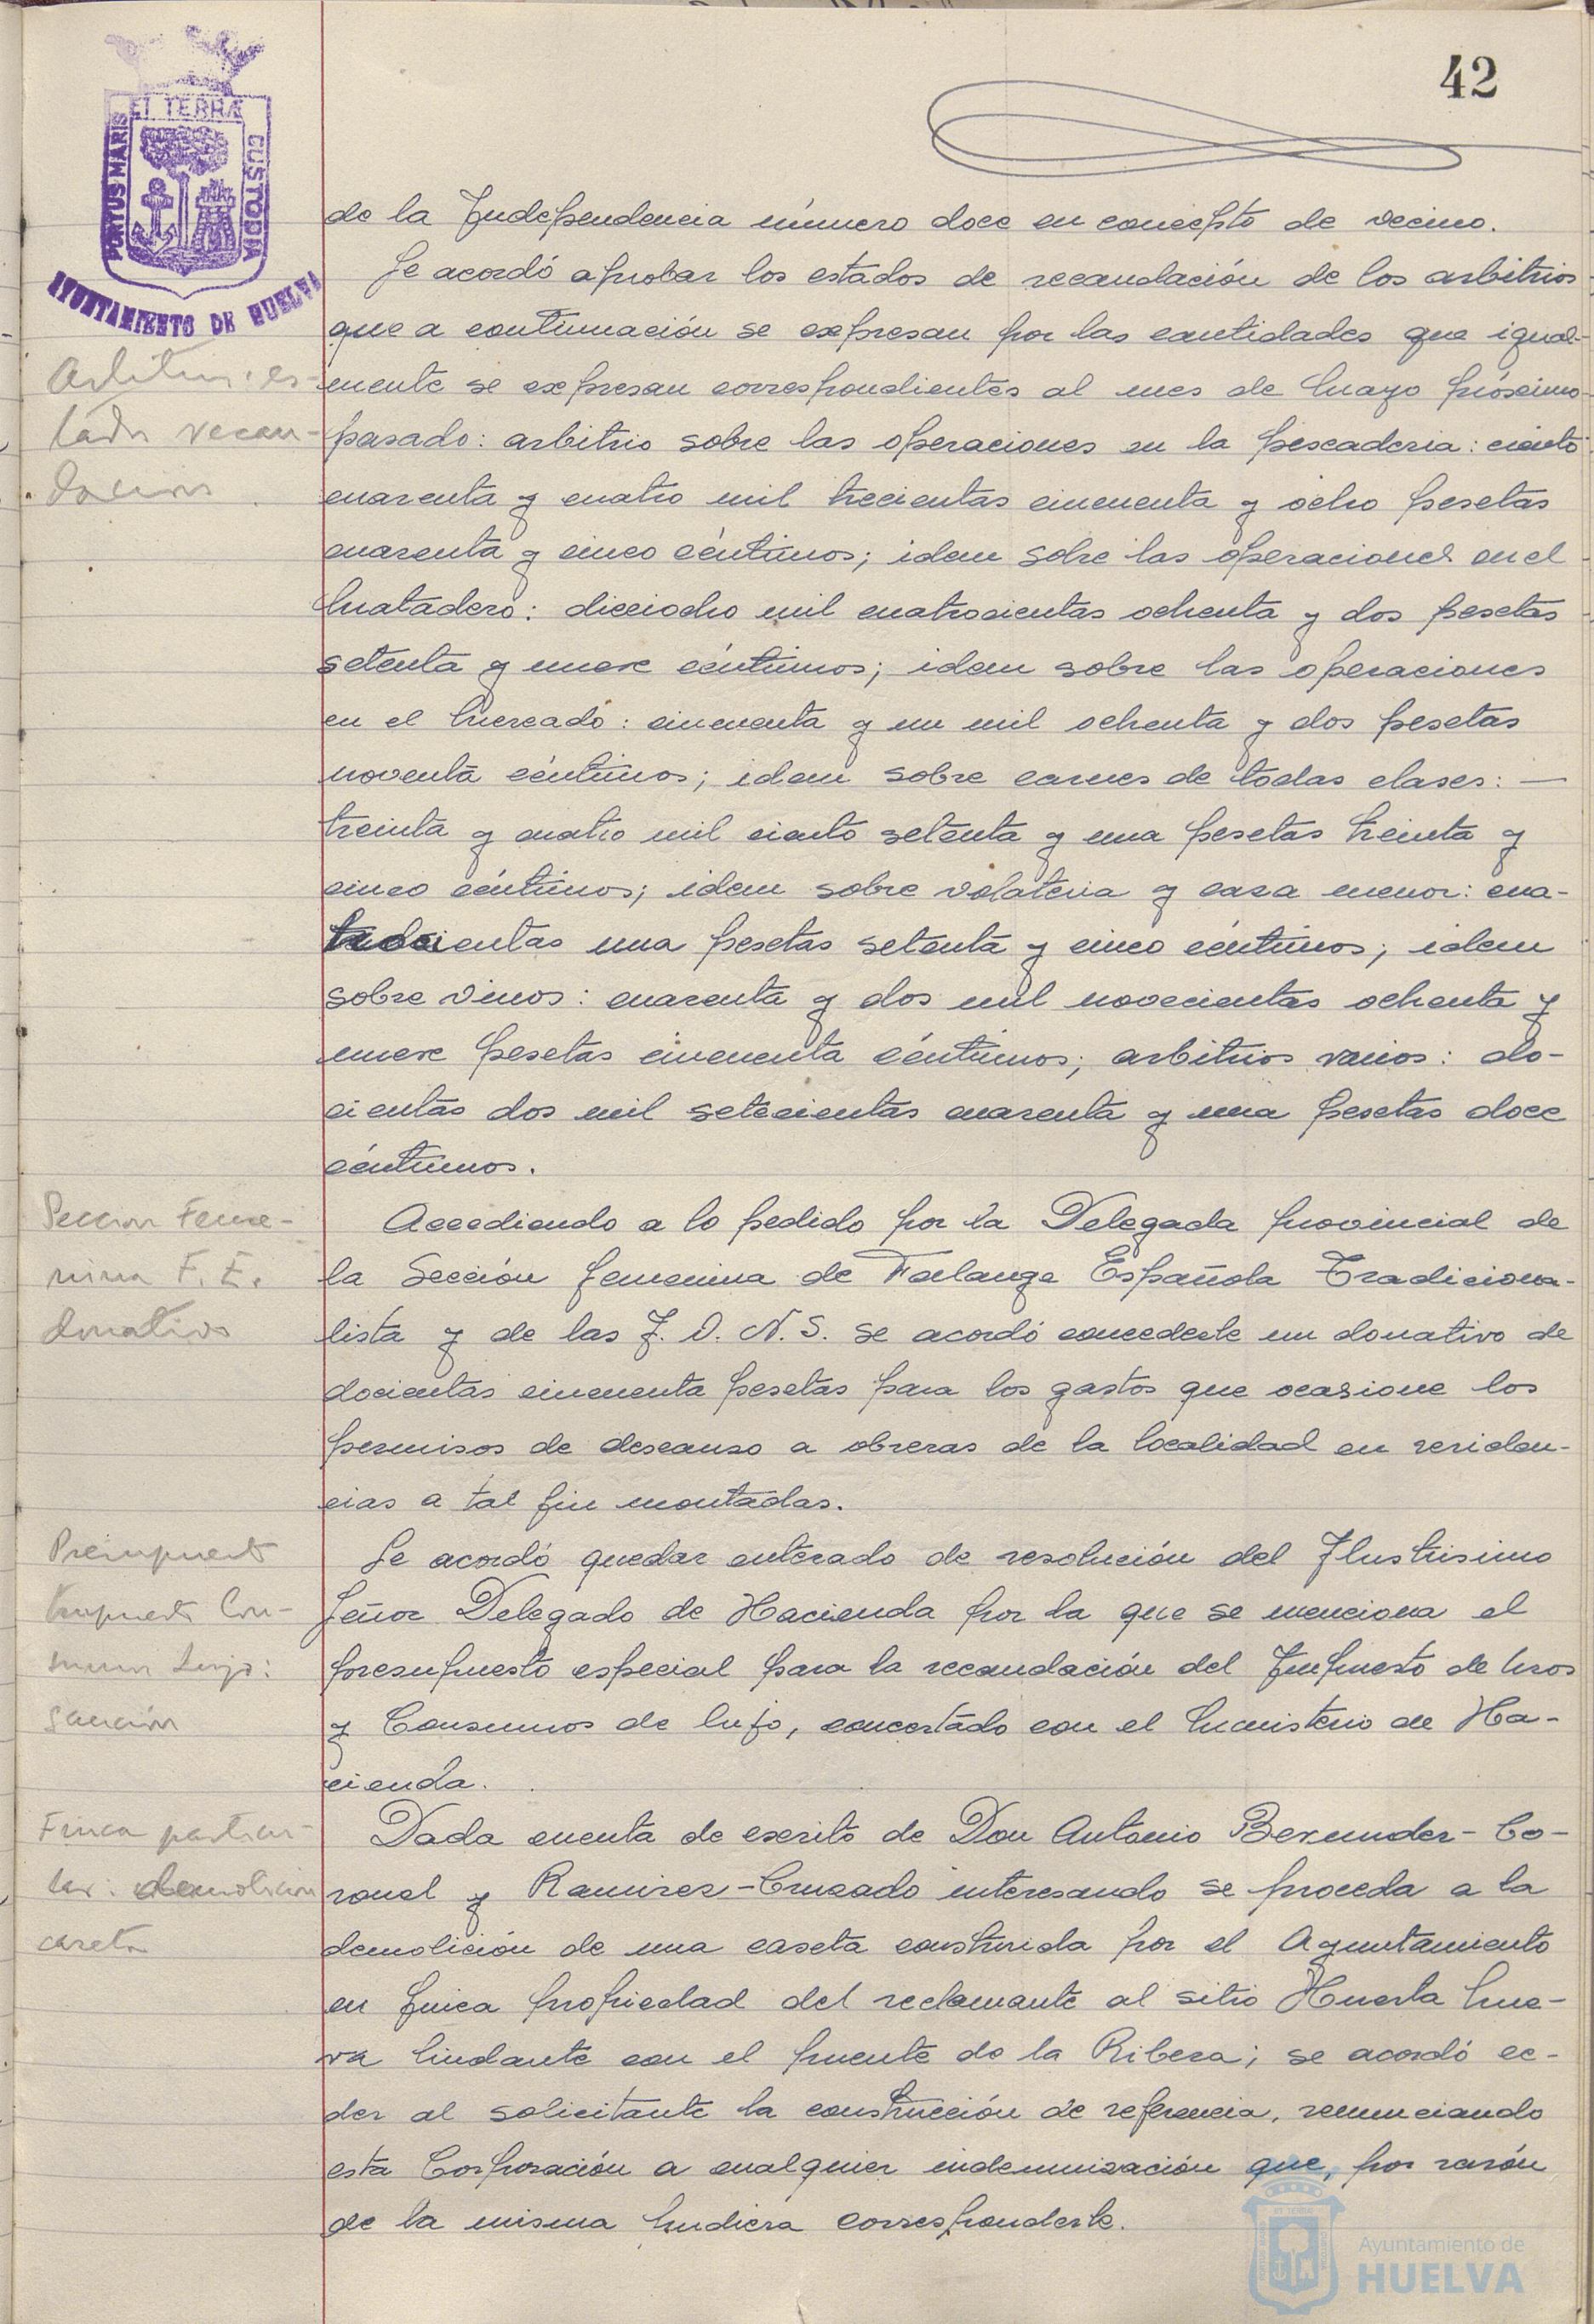 42
ET TERRA
PORTUS MARIS
CUSTODIA
AYUNTAMIENTO DE HUELVA
de la Independencia número doce en concepto de vecino.
Se acordó aprobar los estados de recaudación de los arbitrios
que a continuación se expresan por las cantidades que igual-
Arbitrios: es-
mente se expresan correspondientes al mes de Mayo próximo
tados recau-
pasado: arbitrio sobre las operaciones en la pescadería: ciento
dación
cuarenta y cuatro mil trecientas cincuenta y ocho pesetas
cuarenta y cinco céntimos; idem sobre las operaciones en el
Matadero: dieciocho mil cuatrocientas ochenta y dos pesetas
setenta y nueve céntimos; idem sobre las operaciones
en el Mercado: cincuenta y un mil ochenta y dos pesetas
noventa céntimos; idem sobre carnes de todas clases: —
treinta y cuatro mil ciento setenta y una pesetas treinta y
cinco céntimos; idem sobre volatería y caza menor: cua-
trocientas una pesetas setenta y cinco céntimos; idem
sobre vinos: cuarenta y dos mil novecientas ochenta y
nueve pesetas cincuenta céntimos; arbitrios varios: do-
cientas dos mil setecientas cuarenta y una pesetas doce
céntimos.
Sección Feme-
Accediendo a lo pedido por la Delegada provincial de
nina F. E.
la Sección femenina de Falange Española Tradiciona-
donativo
lista y de las J. O. N. S. se acordó concederle un donativo de
docientas cincuenta pesetas para los gastos que ocasione los
permisos de descanso a obreras de la localidad en residen-
cias a tal fin montadas.
Presupuesto
Se acordó quedar enterado de resolución del Ilustrisimo
Impuesto Con-
Señor Delegado de Hacienda por la que se menciona el
sumos Lujo:
presupuesto especial para la recaudación del Impuesto de Usos
sanción
y Consumos de lujo, concertado con el Ministerio de Ha-
cienda.
Finca particu-
Dada cuenta de escrito de Don Antonio Bermudez-Co-
lar: demolicion
ronel y Ramirez-Cruzado interesando se proceda a la
caseta
demolición de una caseta construida por el Ayuntamiento
en finca propiedad del reclamante al sitio Huerta Nue-
va lindante con el puente de la Ribera; se acordó ce-
der al solicitante la construcción de referencia, renunciando
esta Corporación a cualquier indemnización que, por razón
de la misma pudiera corresponderle.
Ayuntamiento de
HUELVA